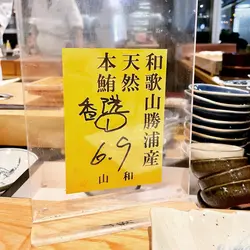 和歌山勝浦産
天然
本鮪
6.9
和
山